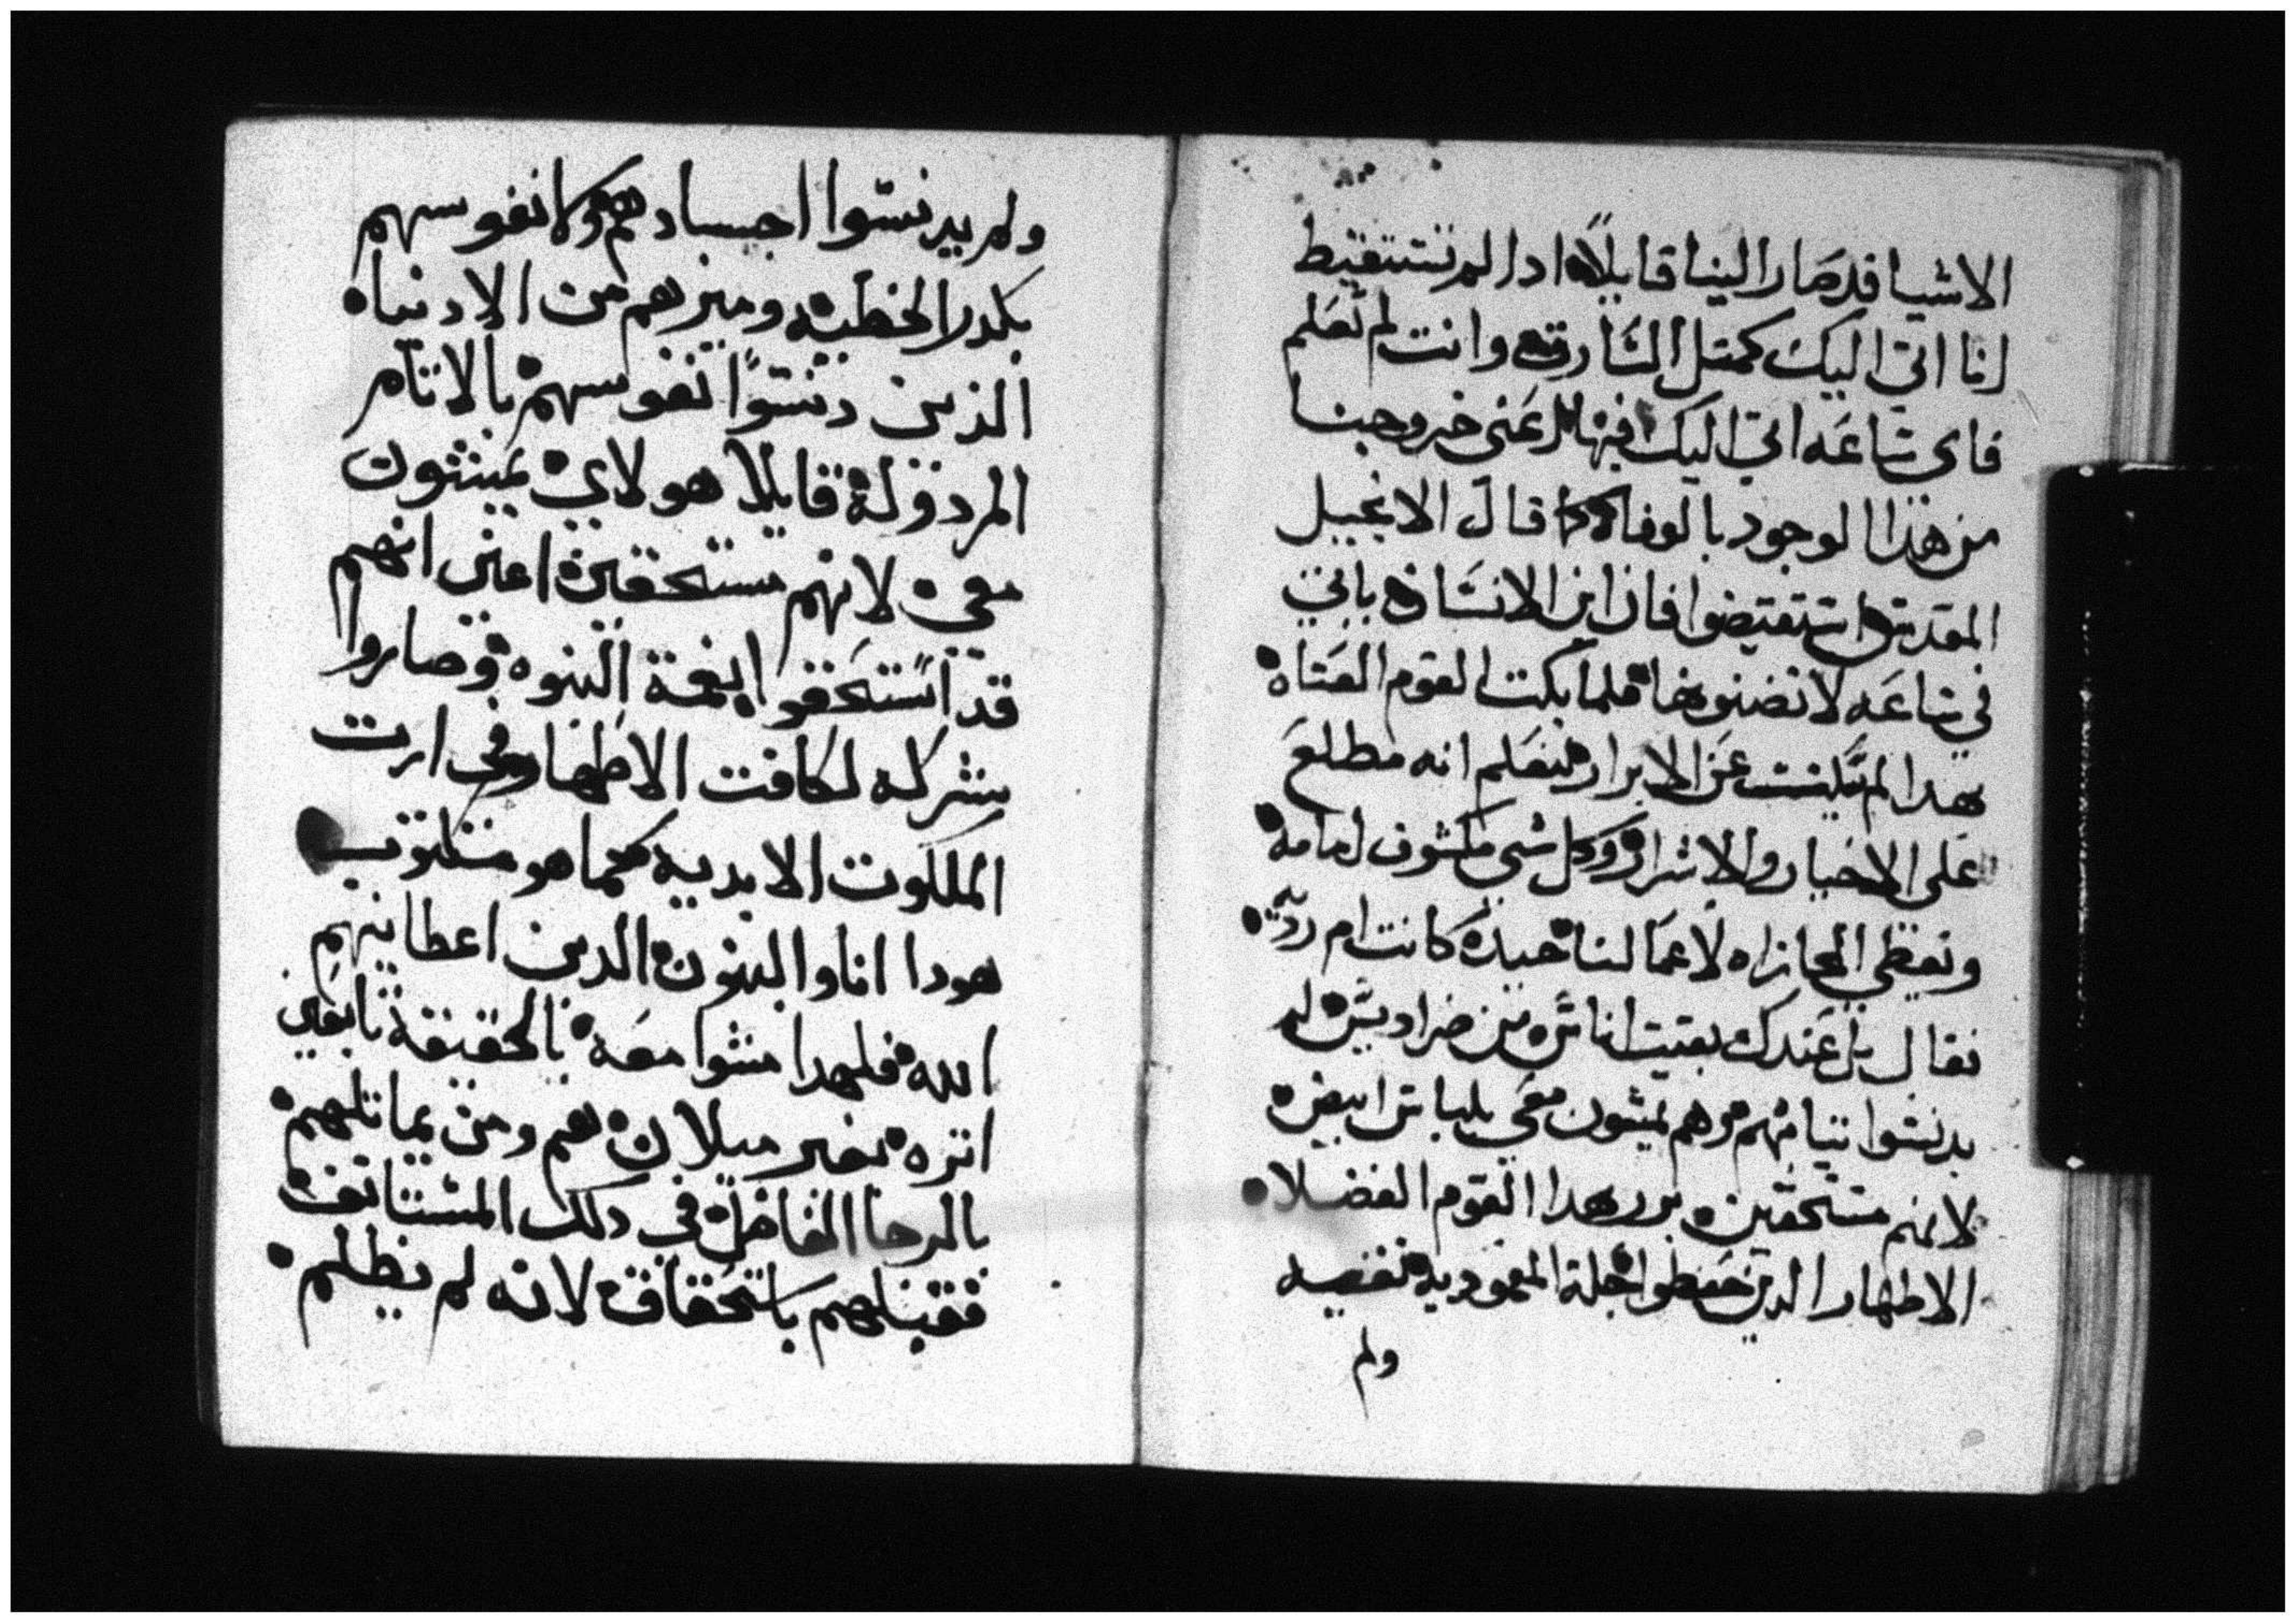 الاشيا قد صار الينا قايلاً ادا لم تستيقيط
انا اتى اليك كمتل السارق وانت لم تعلم
فاى ساعه اتى اليك فيها لعنى خروجنا
من هذا الوجود بالوفاه كما قال الانجيل
المقدس استيقيضوا فان ابن الانسان ياتي
في ساعه لا تضنوها فلما بكت القوم العتاه
بهدا لم عن الابرار لنعلم انه مطلع
على الاخيار والاشرار وكل شي مكشوف امامه
ونعطي المجازاه لاعمالنا حميده كانت ام رديه
فقال بل عندك بقيت اناس من صراديس لم
يدنسوا تيابهم وهم يمشون معي بلباس ابيض
لانهم مستحقين بررهدا القوم الفضلا
الاطهار الدين حفظوا حلة المعموديه نقيه
ولم
ولم يدنسوا اجسادهم ولا نفوسهم
بكدر الخطيه وميزهم من الادنيا
الذين دنسوا نفوسهم بالاتام
المردوله قايلا هولاي يمشون
معي لانهم مستحقين اعنى انهم
قد استحقوا نعمة البنوه وصاروا
شركه لكافت الاطهار وفي ارت
الملكوت الابديه كما هو مكتوب
هودا انا والبنون الدين اعطانيهم
الله فلهدا مشوا معه بالحقيقة تابعين
اتره بغير ميلان هم ومن يماتلهم
بالرجا الفاضل في دلك المستانف
فقبلهم باستحقاق لانه لم يظلم